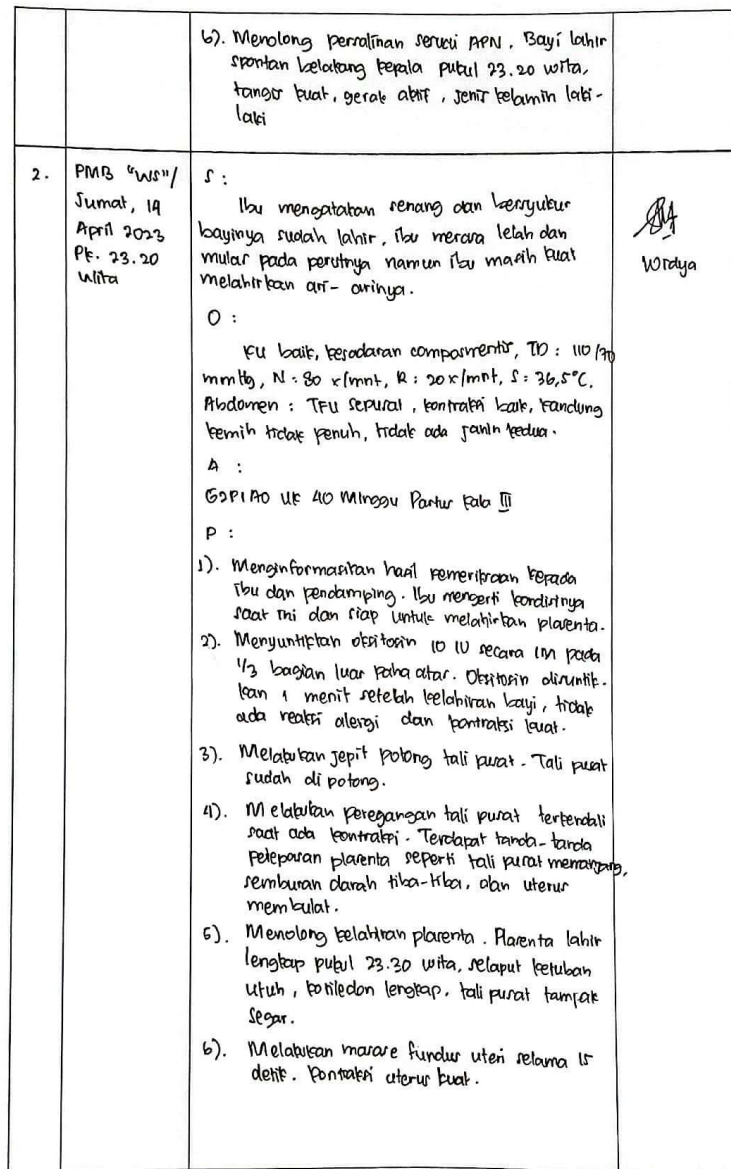 6). Menolong persalinan sesuai APN. Bayi lahir
spontan belakang kepala pukul 23.20 wita,
tangis kuat, gerak aktif, jenis kelamin laki-
laki
2.
PMB "WS"/
Jumat, 19
April 2023
Pk. 23.20
Wita
S :
Ibu mengatakan senang dan bersyukur
bayinya sudah lahir, ibu merasa lelah dan
mulas pada perutnya namun ibu masih kuat
melahirkan ari-arinya.
O :
KU baik, kesadaran composmentis, TD : 110/70
mmHg, N : 80 x/mnt, R : 20 x/mnt, S : 36,5°C.
Abdomen : TFU sepusat, kontraksi baik, kandung
kemih tidak penuh, tidak ada janin kedua.
A :
G2P1A0 UK 40 Minggu Partus Kala III
P :
1). Menginformasikan hasil pemeriksaan kepada
ibu dan pendamping. Ibu mengerti kondisinya
saat ini dan siap untuk melahirkan plasenta.
2). Menyuntikkan oksitosin 10 IU secara IM pada
1/3 bagian luar paha atas. Oksitosin disuntik-
kan 1 menit setelah kelahiran bayi, tidak
ada reaksi alergi dan kontraksi kuat.
3). Melakukan jepit potong tali pusat. Tali pusat
sudah di potong.
4). Melakukan peregangan tali pusat terkendali
saat ada kontraksi. Terdapat tanda-tanda
pelepasan plasenta seperti tali pusat memanjang,
semburan darah tiba-tiba, dan uterus
membulat.
5). Menolong kelahiran plasenta. Plasenta lahir
lengkap pukul 23.30 wita, selaput ketuban
utuh, kotiledon lengkap, tali pusat tampak
segar.
6). Melakukan masase fundus uteri selama 15
detik. Kontraksi uterus kuat.
Widya